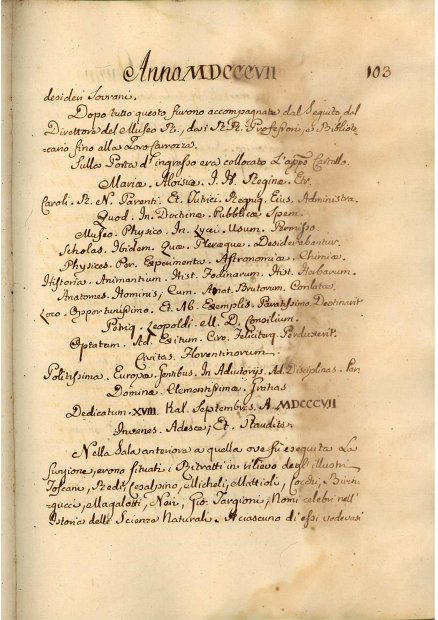 Anno MDCCCVII
103
desideri Sovrani.
Dopo tutto questo furono accompagnate dal Seguito, dal
Direttore del Museo R., dai R. R. Professori, e Bibliote-
cario fino alla Loro Carrozza.
Sulla Porta d'ingresso era collocato L'app.o Cartello.
Mariæ. Aloisiæ. I. H. Reginæ. Etr.
Caroli. R. N. Parenti. Et. Tutrici. Regniq. Eius. Administra.
Quod. In. Doctrinæ. Publicæ Spem.
Museo. Physico. In. Lycei. Usum. Permisso.
Scholas. Ibidem. Quæ. Pleræque. Desiderabantur.
Physices. Per. Experimenta. Astronomiæ. Chimiæ
Historiæ. Animantium. Hist. Fodinarum. Hist. Herbarum.
Anatomes. Hominis, Cum. Anat. Brutorum. Conlatæ
Loco. Opportunissimo. Et. Ab. Exemplis. Paratissimo. Destinarit
Petriq. Leopoldi. M. D. Consilium.
Optatum. Ad. Exitum. Cito. Feliciterq. Perduxerit.
Civitas. Florentinorum.
Politissimæ. Europæ. Gentibus. In Adiutorijs. Ad. Disciplinas. Par
Dominæ. Clementissimæ. Gratias
Dedicatum. XVIII. Kal. Septembres. A. MDCCCVII
Iuvenes. Adeste, Et. Plaudite.
Nella Sala anteriore a quella ove fù eseguita La
funzione, erono situati i Ritratti in rilievo degl'illustri
Toscani, Redi, Cesalpino, Micheli, Mattioli, Cocchi, Birin-
gucci, Magalotti, Neri, Gio. Targioni, Nomi celebri nell'
Istoria delle Scienze Naturali. A ciascuno di essi vedevasi